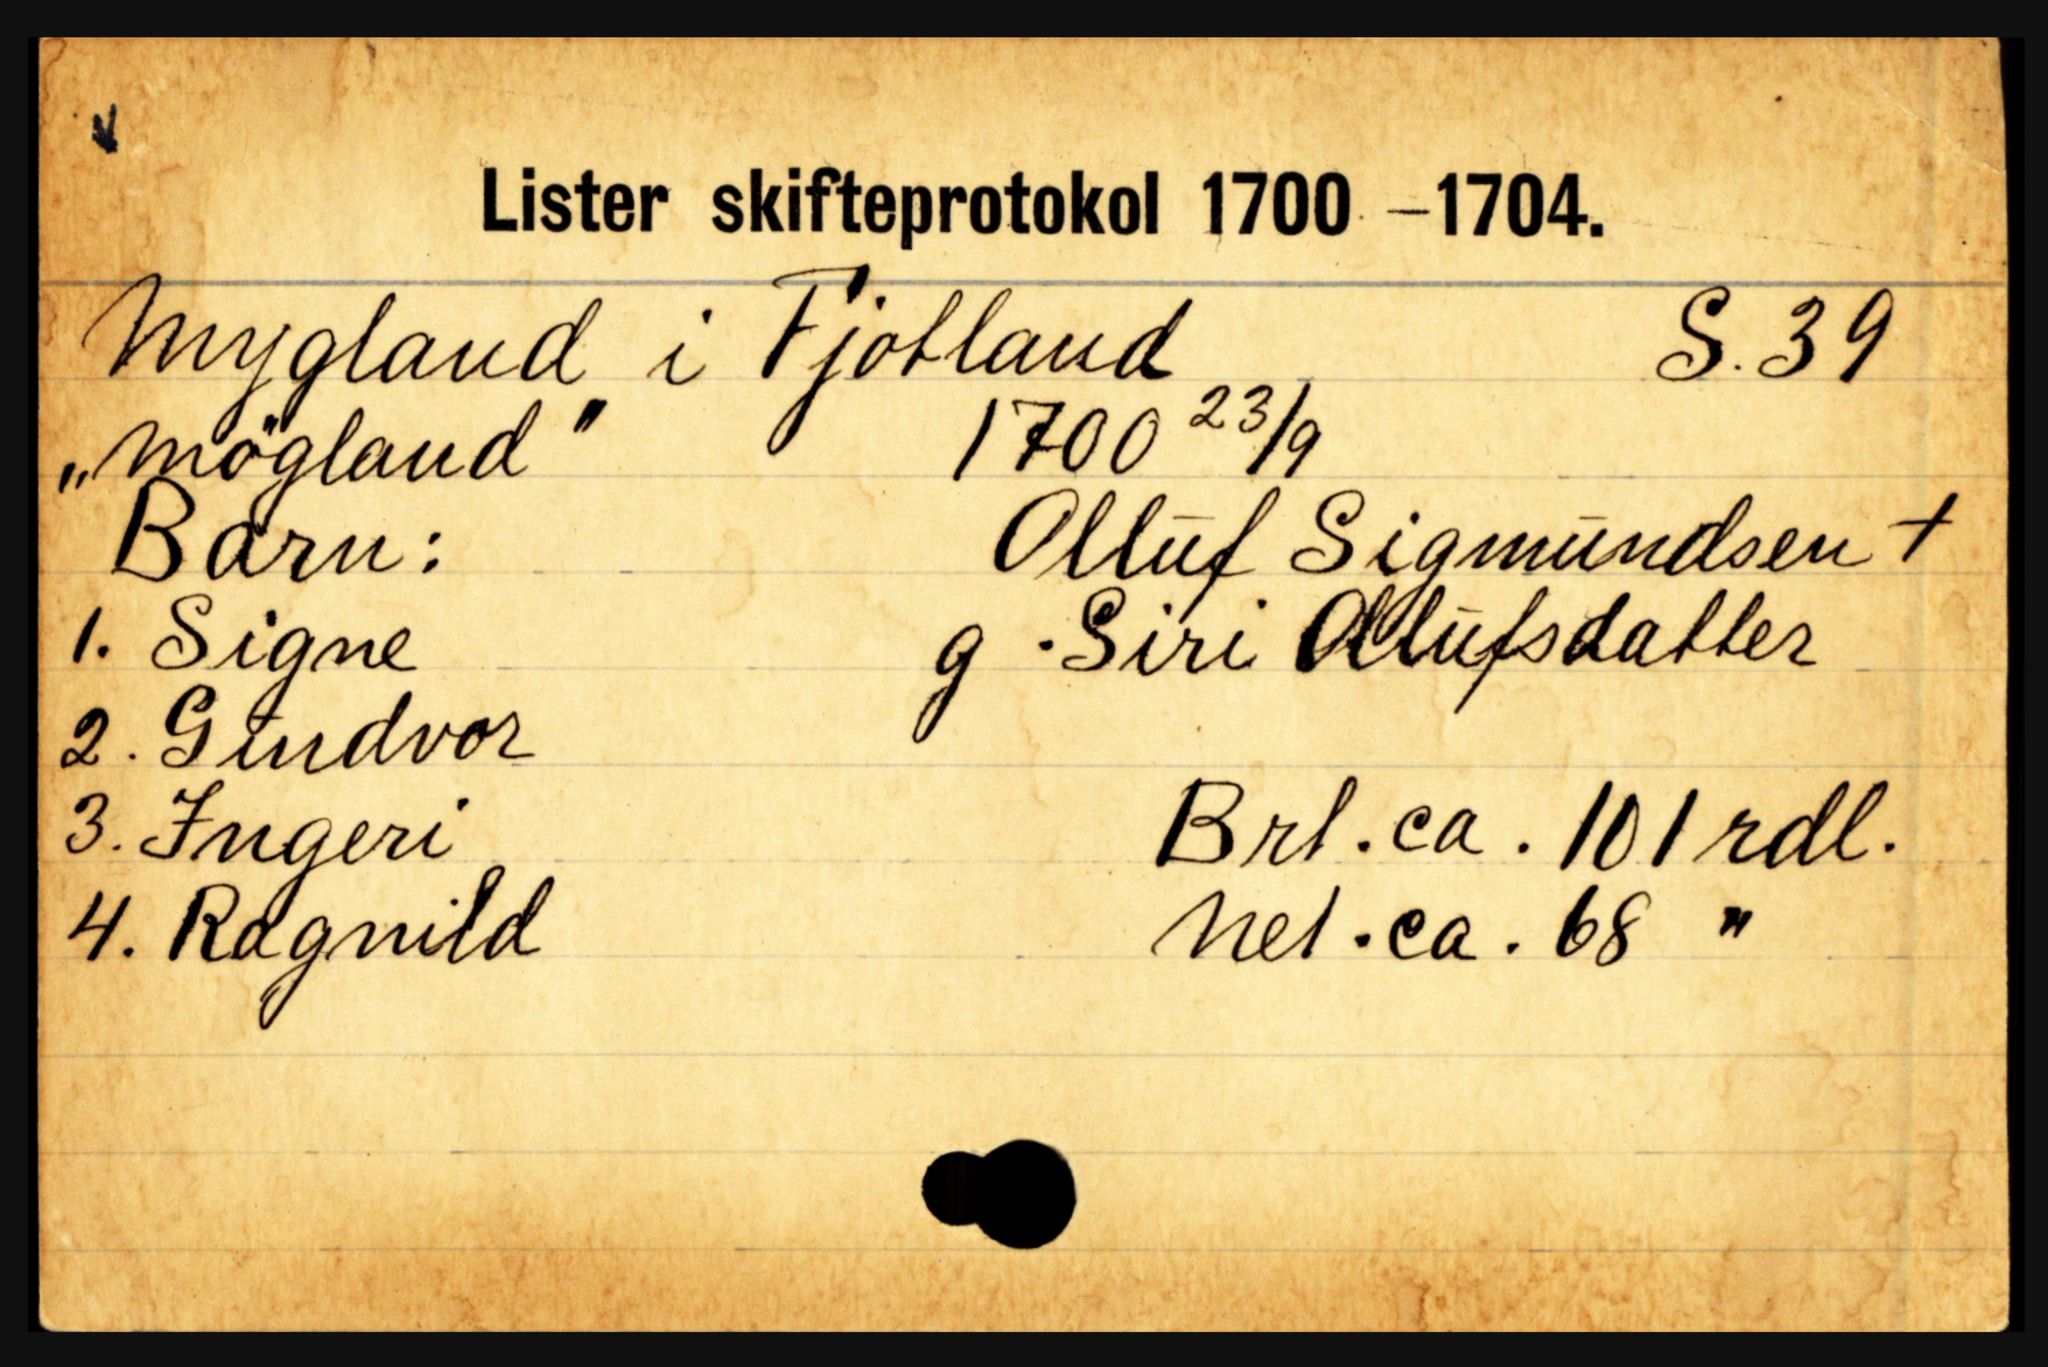 Lister skifteprotokol 1700 – 1704.
Mygland i Fjotland S. 39
„Mögland" 1700 23/9
Barn: Olluf Sigmundsen +
1. Signe g. Siri Ollufsdatter
2. Gundvor
3. Ingeri Brt. ca. 101 rdl.
4. Ragnild Net. ca. 68 "